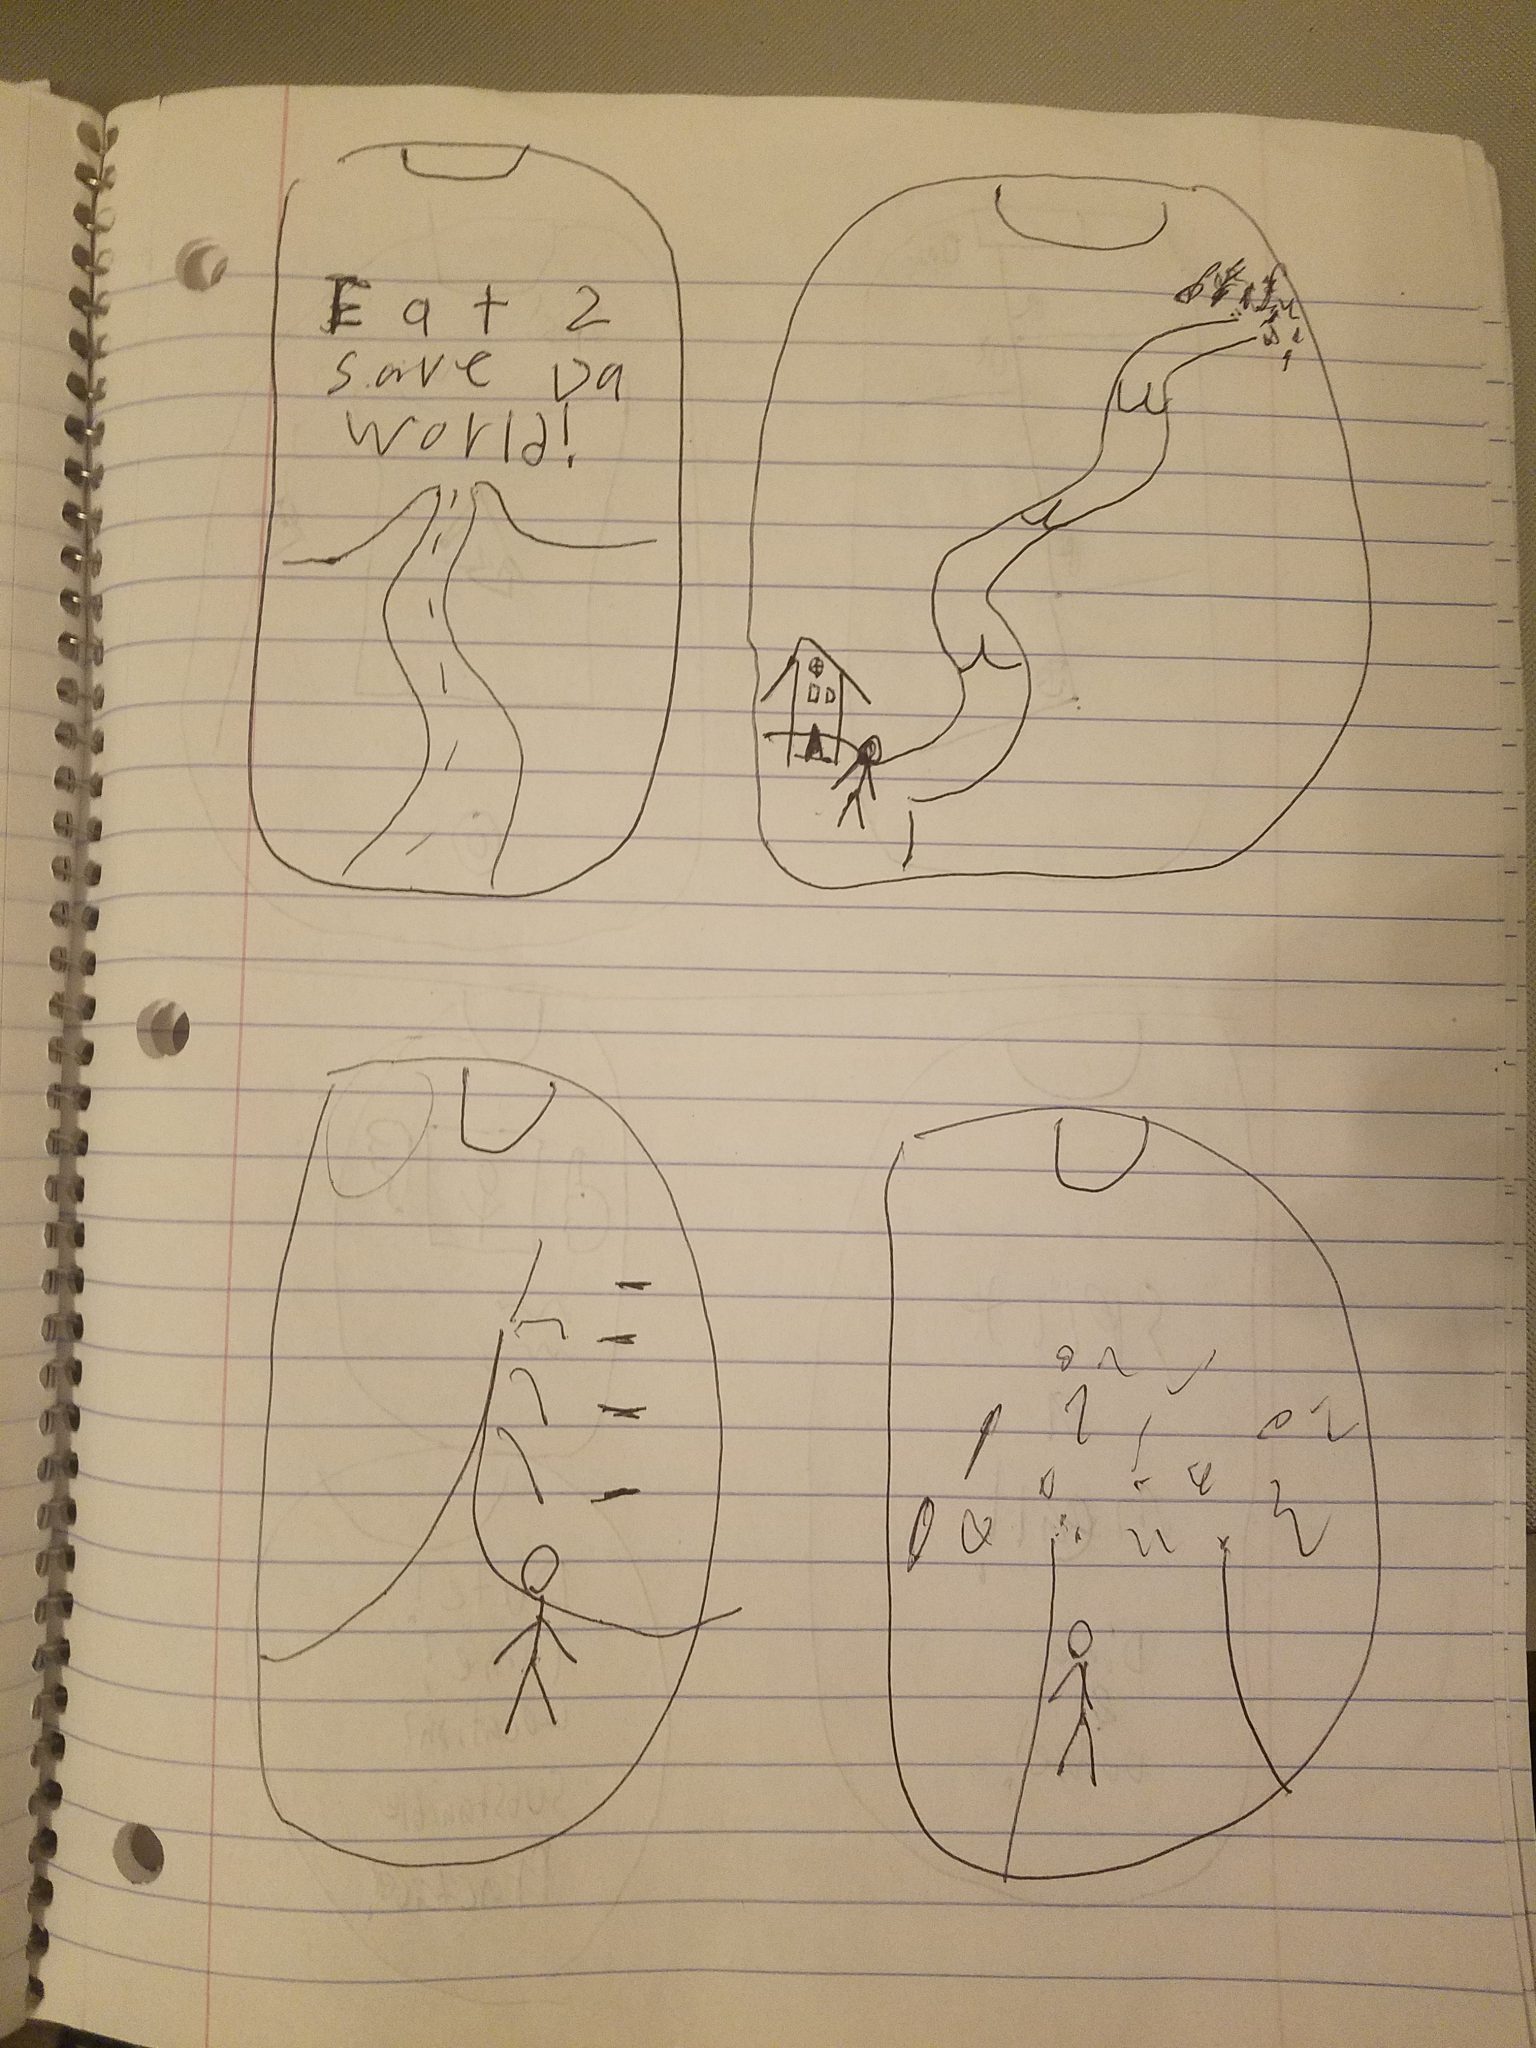 Eat 2
save Da
world!